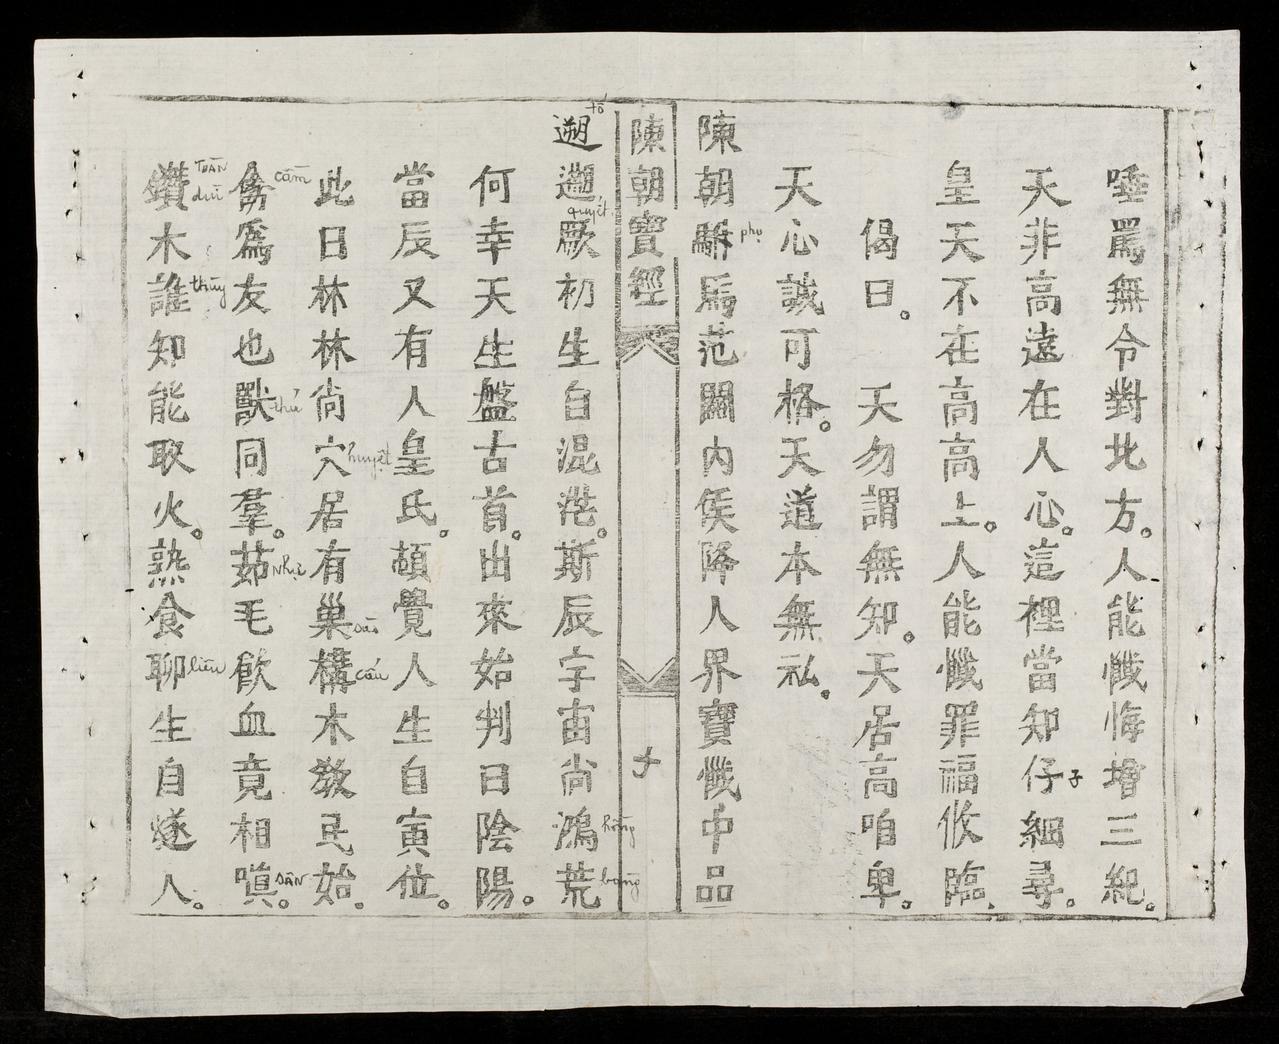 唾罵無令對北方。人能懺悔增三紀。
天非高遠在人心。這裡當知仔細尋。
子
皇天不在高高上。人能懺罪福攸臨。
偈曰。天勿謂無知。天居高咱卑。
天心誠可格。天道本無私。
陳朝駙馬范關內侯降人界寶懺中品
phụ
陳朝寶經
十
遡厥初生自混茫。斯辰宇宙尚鴻荒
遡 tố
quyết
hồng
bàng
何幸天生盤古首。出來始判曰陰陽。
當辰又有人皇氏。頓覺人生自寅位。
此日林林尚穴居有巢構木教民始。
huyệt
sào
cấu
禽爲友也獸同羣。茹毛飲血竟相嗔。
cầm
thú
Như
SÂN
鑽木誰知能取火。熟食聊生自燧人。
TOÀN
thùy
liêu